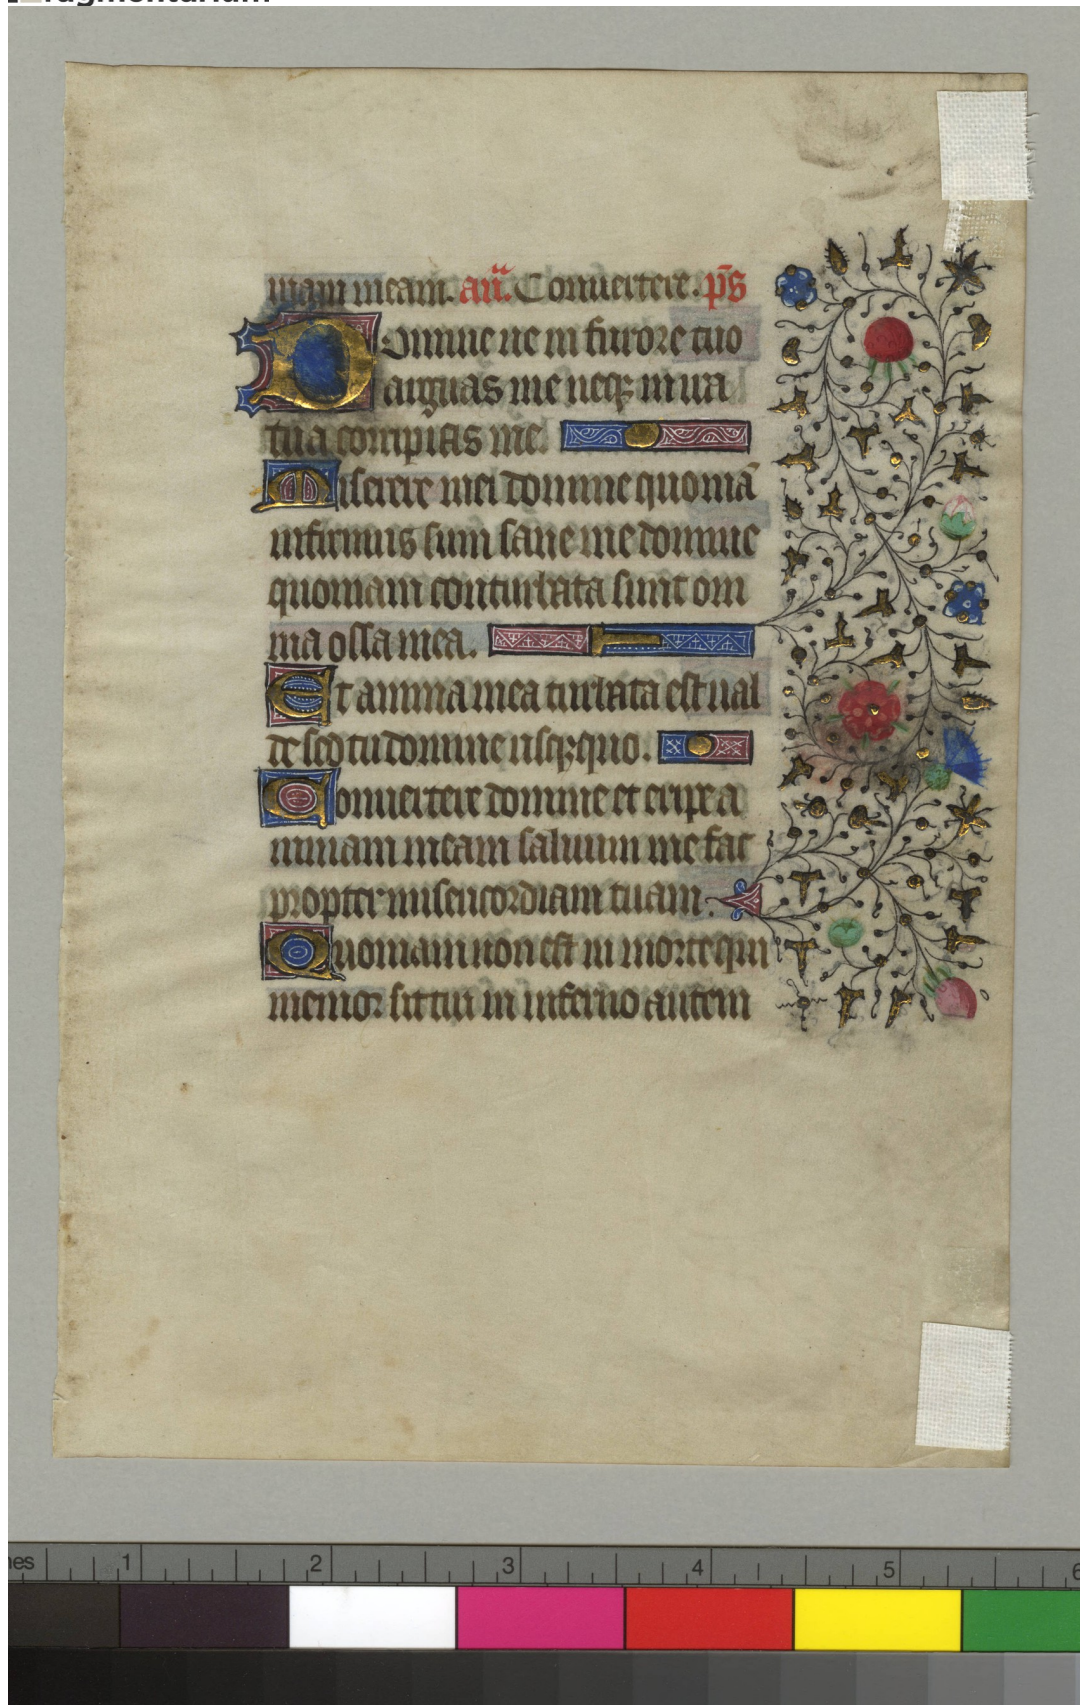 mam meam. an̄. Conuertere. p̄s
Domine ne in furore tuo
arguas me neqꝫ in ira
tua corripias me.
Miserere mei domine quoniā
infirmus sum sane me domine
quoniam conturbata sunt om
nia ossa mea.
Et anima mea turbata est ual
de sed tu domine usqꝫquo.
Conuertere domine et eripe a
nimam meam saluum me fac
propter misericordiam tuam.
Quoniam non est in morte qui
memor sit tui in inferno autem
1 2 3 4 5 6